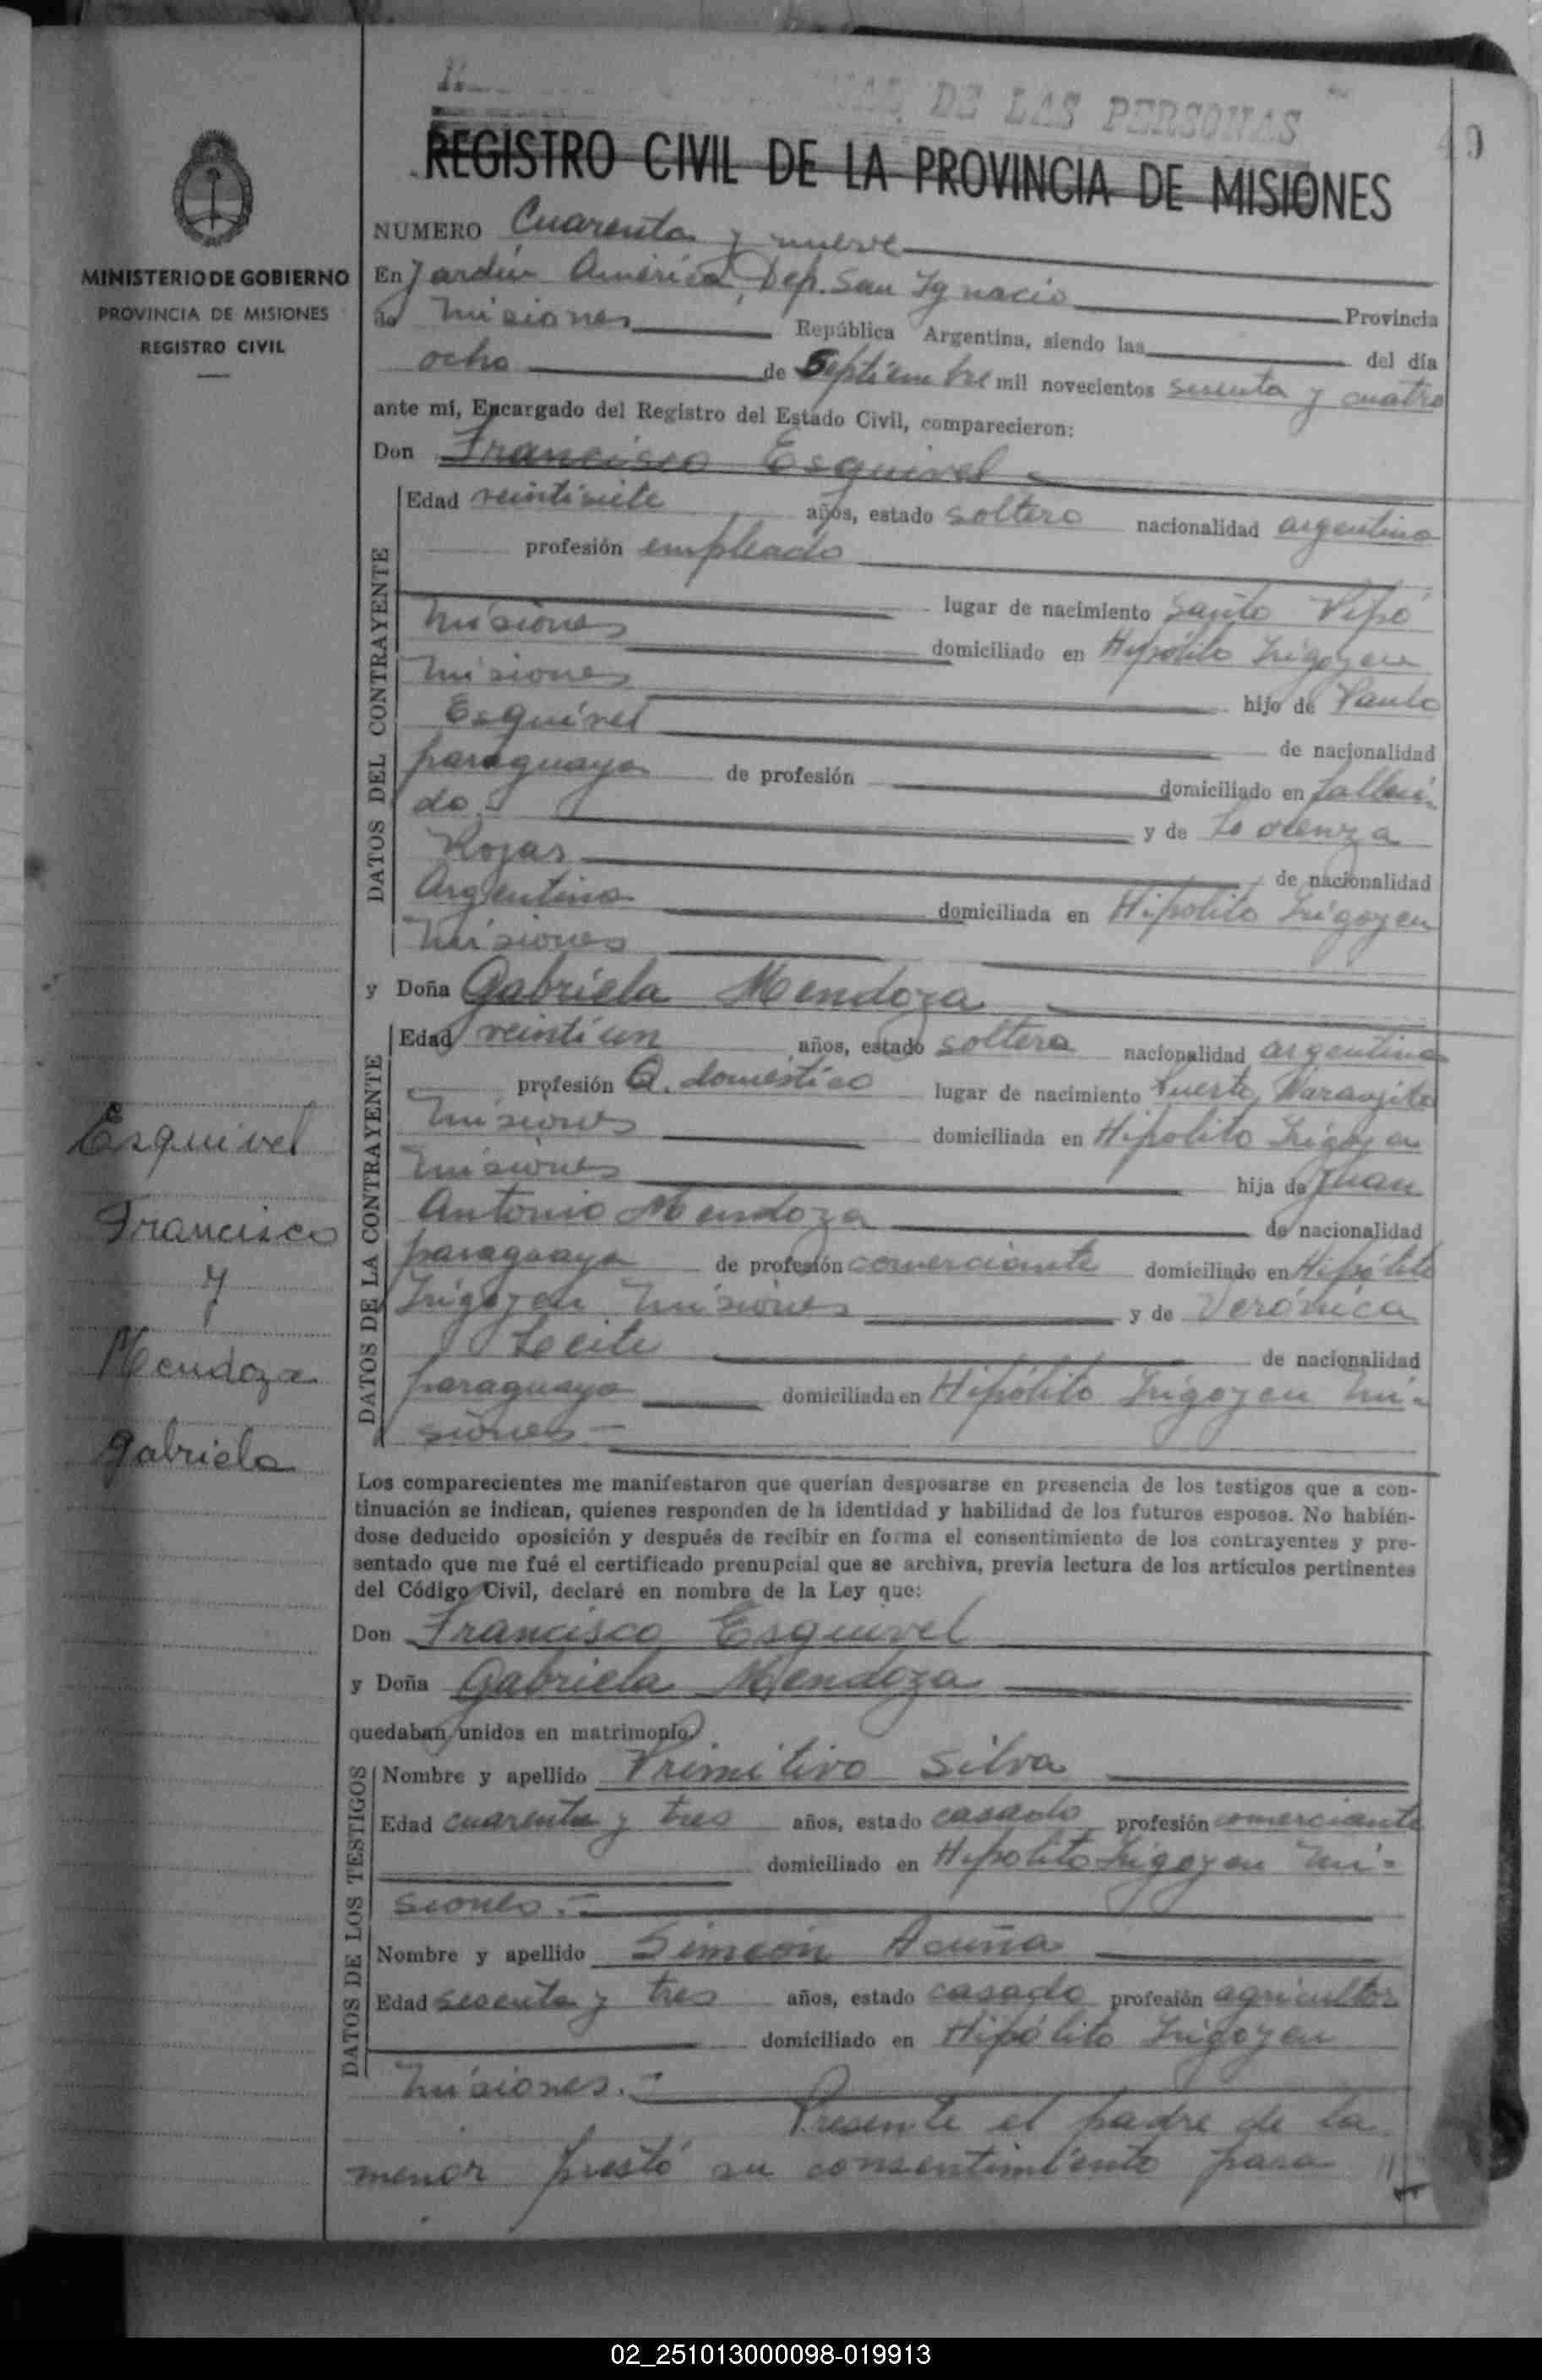 DE LAS PERSONAS
REGISTRO CIVIL DE LA PROVINCIA DE MISIONES
MINISTERIO DE GOBIERNO
PROVINCIA DE MISIONES
REGISTRO CIVIL
NUMERO Cuarenta y nueve
En Jardín América, Dep. San Ignacio Provincia
de Misiones República Argentina, siendo las del día
ocho de Septiembre mil novecientos sesenta y cuatro
ante mí, Encargado del Registro del Estado Civil, comparecieron:
Don Francisco Esquivel
DATOS DEL CONTRAYENTE
Edad veintisiete años, estado soltero nacionalidad argentina
profesión empleado
lugar de nacimiento Santo Pipó
Misiones domiciliado en Hipólito Irigoyen
Misiones hijo de Paulo
Esquivel de nacionalidad
paraguaya de profesión domiciliado en falleci-
do.- y de Lorenza
Rojas de nacionalidad
Argentina domiciliada en Hipolito Irigoyen
Misiones
y Doña Gabriela Mendoza
DATOS DE LA CONTRAYENTE
Edad veintiun años, estado soltera nacionalidad argentina
profesión Q. doméstico lugar de nacimiento Puerto Naranjito
Misiones domiciliada en Hipolito Irigoyen
Misiones hija de Juan
Antonio Mendoza de nacionalidad
paraguaya de profesión comerciante domiciliado en Hipólito
Irigoyen Misiones y de Verónica
de nacionalidad
paraguaya domiciliada en Hipólito Irigoyen Mi-
siones -
Esquivel
Francisco
y
Mendoza
Gabriela
Los comparecientes me manifestaron que querían desposarse en presencia de los testigos que a con-
tinuación se indican, quienes responden de la identidad y habilidad de los futuros esposos. No habién-
dose deducido oposición y después de recibir en forma el consentimiento de los contrayentes y pre-
sentado que me fué el certificado prenupcial que se archiva, previa lectura de los artículos pertinentes
del Código Civil, declaré en nombre de la Ley que:
Don Francisco Esquivel
y Doña Gabriela Mendoza
quedaban unidos en matrimonio.
DATOS DE LOS TESTIGOS
Nombre y apellido Primitivo Silva
Edad cuarenta y tres años, estado casado profesión comerciante
domiciliado en Hipolito Irigoyen Mi-
siones.-
Nombre y apellido Simeón Acuña
Edad sesenta y tres años, estado casado profesión agricultor
domiciliado en Hipólito Irigoyen
Misiones.-
Presente el padre de la
menor prestó su consentimiento para
02_251013000098-019913